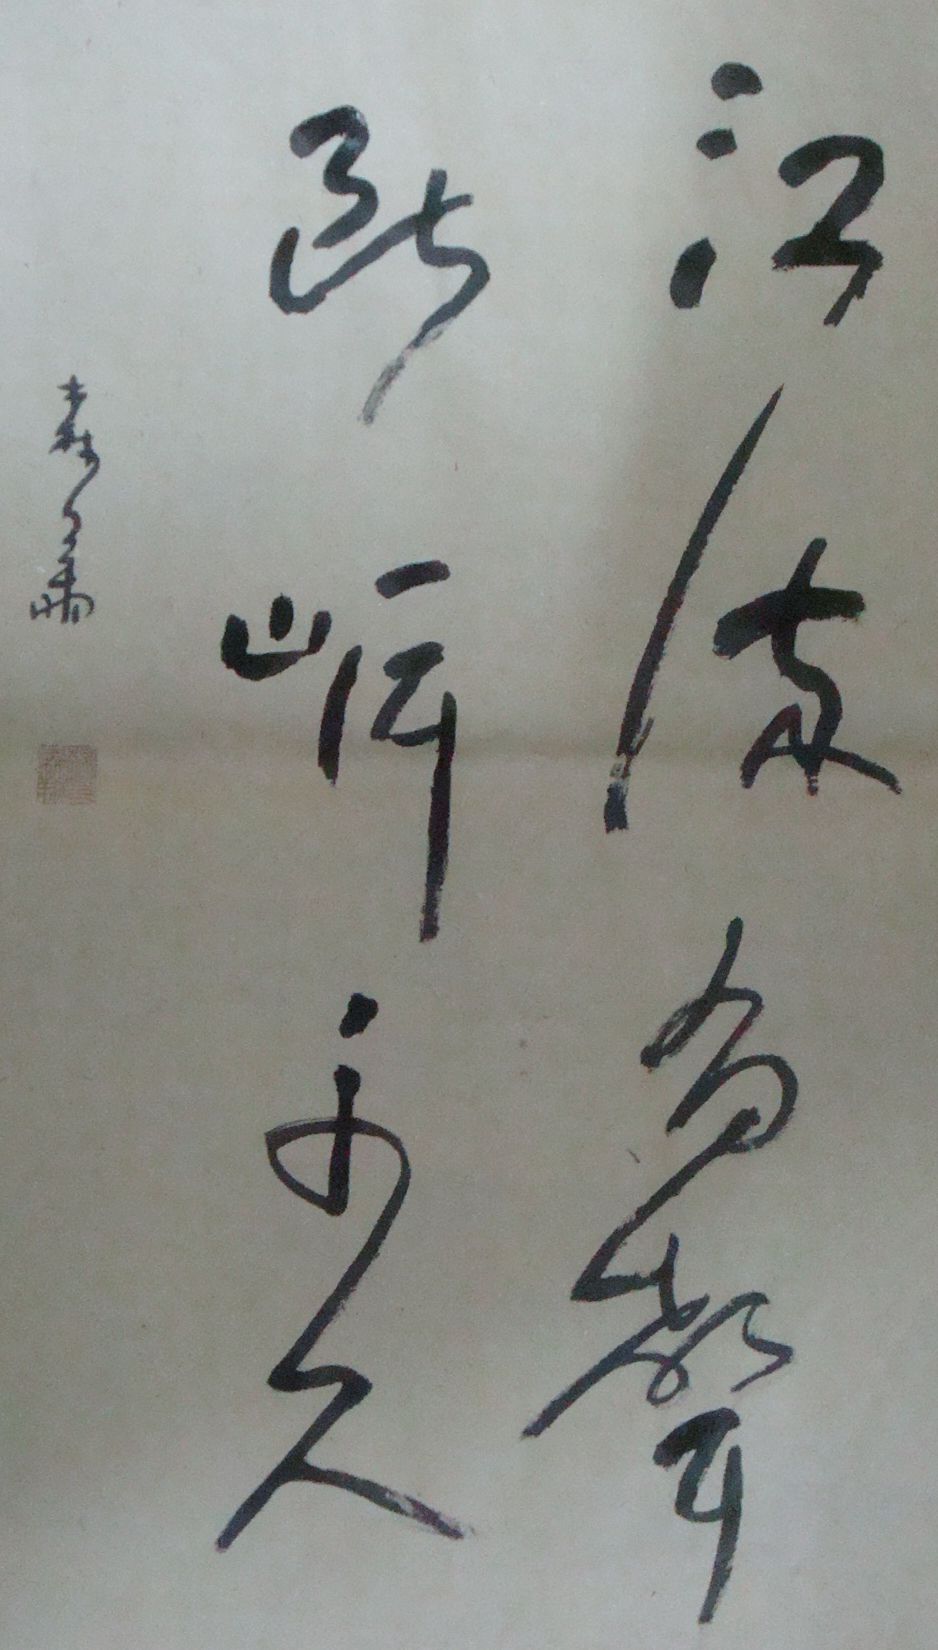 江流有聲
斷岸千尺